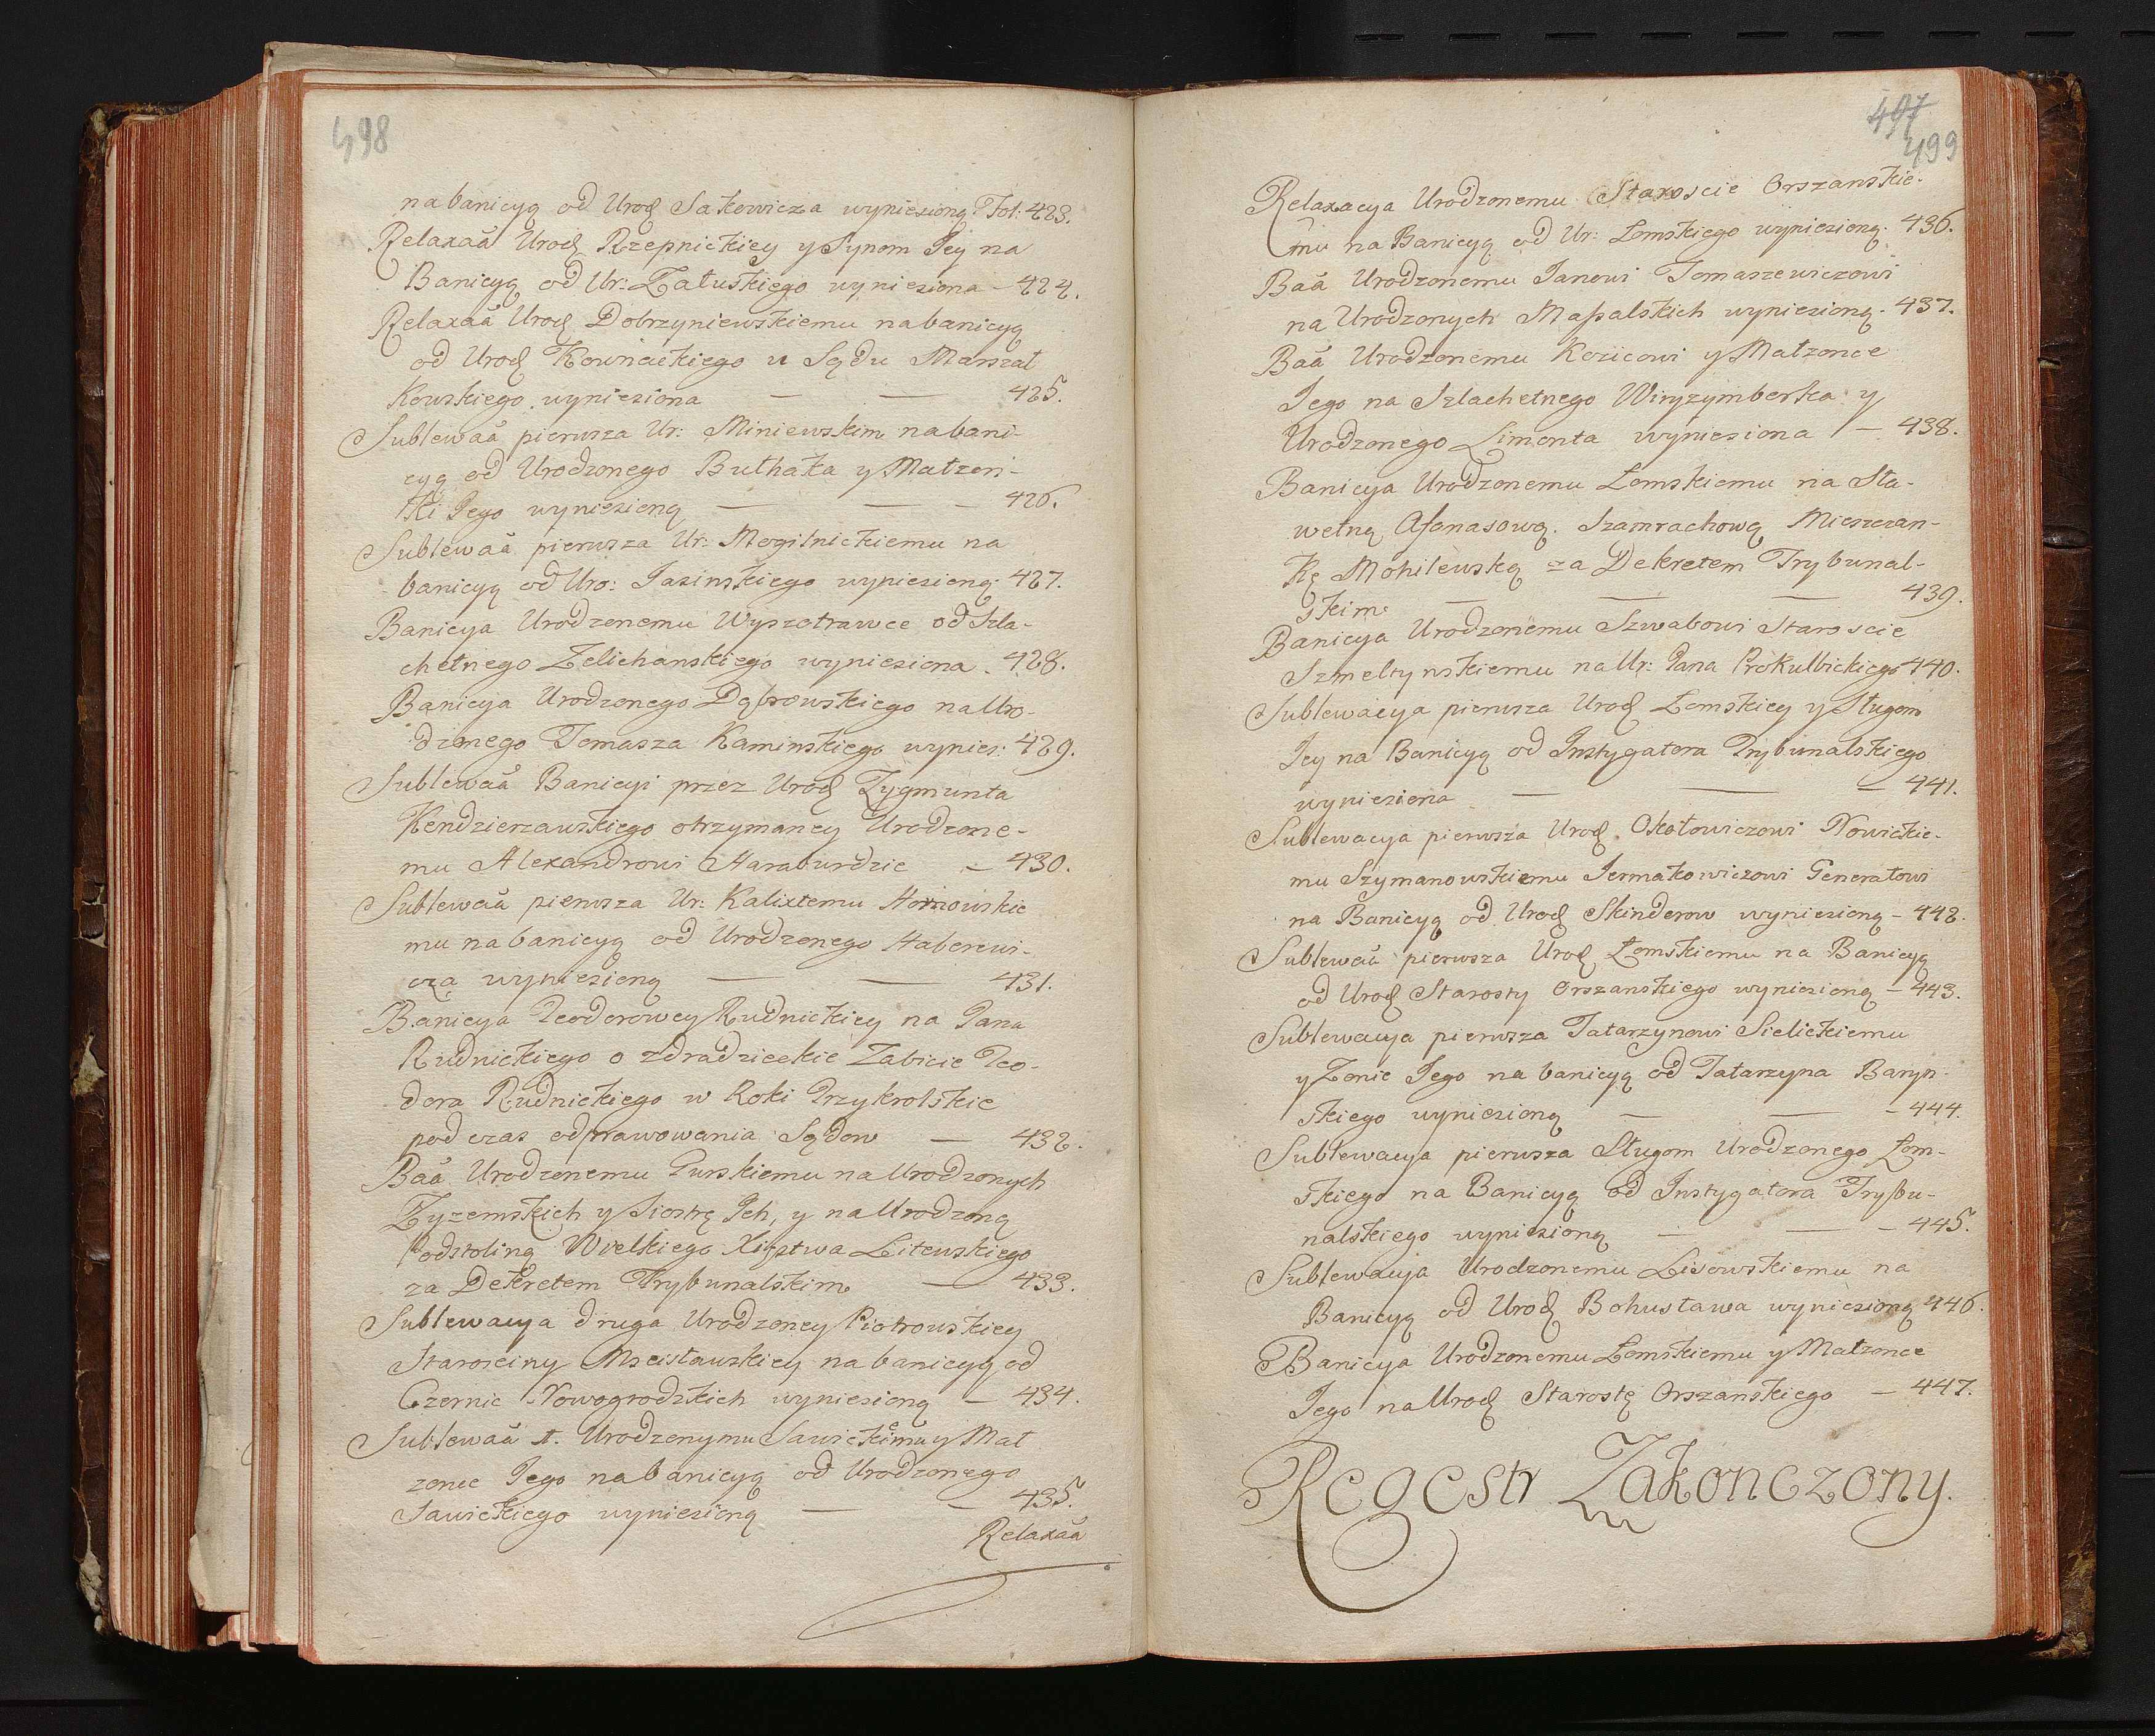 498
na banicyą od Urod Sakowicza wyniesioną. Fol: 423.
Relaxaa Urod Rzepnickiey y Synom Jey na
Banicyą od Ur: Załuskiego wyniesiona – 424.
Relaxaa Urod Dobrzyniewskiemu na banicyą
od Urod Kownackiego u Sądu Marszał
Kowskiego wyniesiona — — 425.
Sublewaa pierwsza Ur: Miniewskim na bani-
cyą od Urodzonego Bułhaka y Małżon-
ki Jego wyniesioną — — 426.
Sublewaa pierwsza Ur: Mogilnickiemu na
banicyą od Uro: Jasinskiego wyniesioną. 427.
Banicya Urodzonemu Wyszotrawce od Szla-
chetnego Zelichanskiego wyniesiona. 428.
Banicya Urodzonego Dąbrowskiego na Uro-
dzonego Tomasza Kaminskiego wynies: 429.
Sublewaa Banicyi przez Urod Zygmunta
Kendzierzawskiego otrzymaney Urodzone-
mu Alexandrowi Haraburdzie – 430.
Sublewaa pierwsza Ur: Kalixtemu Hornowskie
mu na banicyą od Urodzonego Haberewi-
cza wyniesioną — — 431.
Banicya Teodorowey Rudnickiey na Pana
Rudnickiego o zdradzieckie Zabicie Teo-
dora Rudnickiego w Roki Przykrolskie
pod czas odprawowania Sądow — 432.
Baa Urodzonemu Gurskiemu na Urodzonych
Zyzemskich y Siostrę Ich, y na Urodzoną
Podstoliną Wielkiego Xięstwa Litewskiego
za Dekretem Trybunalskim — 433.
Sublewacya druga Urodzoney Piotrowskiey
Starosciny Mscisławskiey na banicyą od
Czernic Nowogrodzkich wyniesioną – 434.
Sublewaa 1. Urodzonymu Sawickiemu y Mał
zonce Jego na banicyą od Urodzonego
Sawickiego wyniesioną — – 435.
Relaxaa
497
499
Relaxacya Urodzonemu Staroscie Orszanskie-
mu na Banicyą od Ur: Łomskiego wyniesioną. 436.
Baa Urodzonemu Janowi Tomaszewiczowi
na Urodzonych Massalskich wyniesioną. 437.
Baa Urodzonemu Kozicowi y Małzonce
Jego na Szlachetnego Winzymberka y
Urodzonego Limonta wyniesiona – 438.
Banicya Urodzonemu Łomskiemu na Sła-
wetną Afanasową Szamrachową Mieszczan-
kę Mohilewską za Dekretem Trybunal-
skim — — — 439.
Banicya Urodzonemu Szwabowi Staroscie
Szmeltynskiemu na Ur: Pana Prokulbickiego 440.
Sublewacya pierwsza Urod Łomskiey y Sługom
Jey na Banicyą od Instygatora Trybunalskiego
wyniesiona — — – 441.
Sublewacya pierwsza Urod. Okołowiczowi Nowickie-
mu Szymanowskiemu Jermakowiczowi Generałowi
na Banicyą od Urod Skinderow wyniesioną – 442.
Sublewaa pierwsza Urod Łomskiemu na Banicyą
od Urod Starosty Orszanskiego wyniesioną – 443.
Sublewacya pierwsza Tatarzynowi Sielickiemu
y Zonie Jego na banicyą od Tatarzyna Baryn-
skiego wyniesioną — — – 444.
Sublewacya pierwsza Sługom Urodzonego Łom-
skiego na Banicyą od Instygatora Trybu-
nalskiego wyniesioną — — – 445.
Sublewacya Urodzonemu Lisowskiemu na
Banicyą od Urod Bohusława wyniesioną 446.
Banicya Urodzonemu Łomskiemu y Małzonce
Jego na Urod Starostę Orszanskiego – 447.
Regestr Zakonczony.